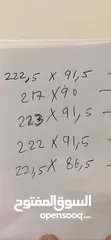 222,5 X 91,5 –
217 X 90 –
223 X 91,5 –
222 X 91,5 –
221,5 X 86,5 –
السوق المفتوح